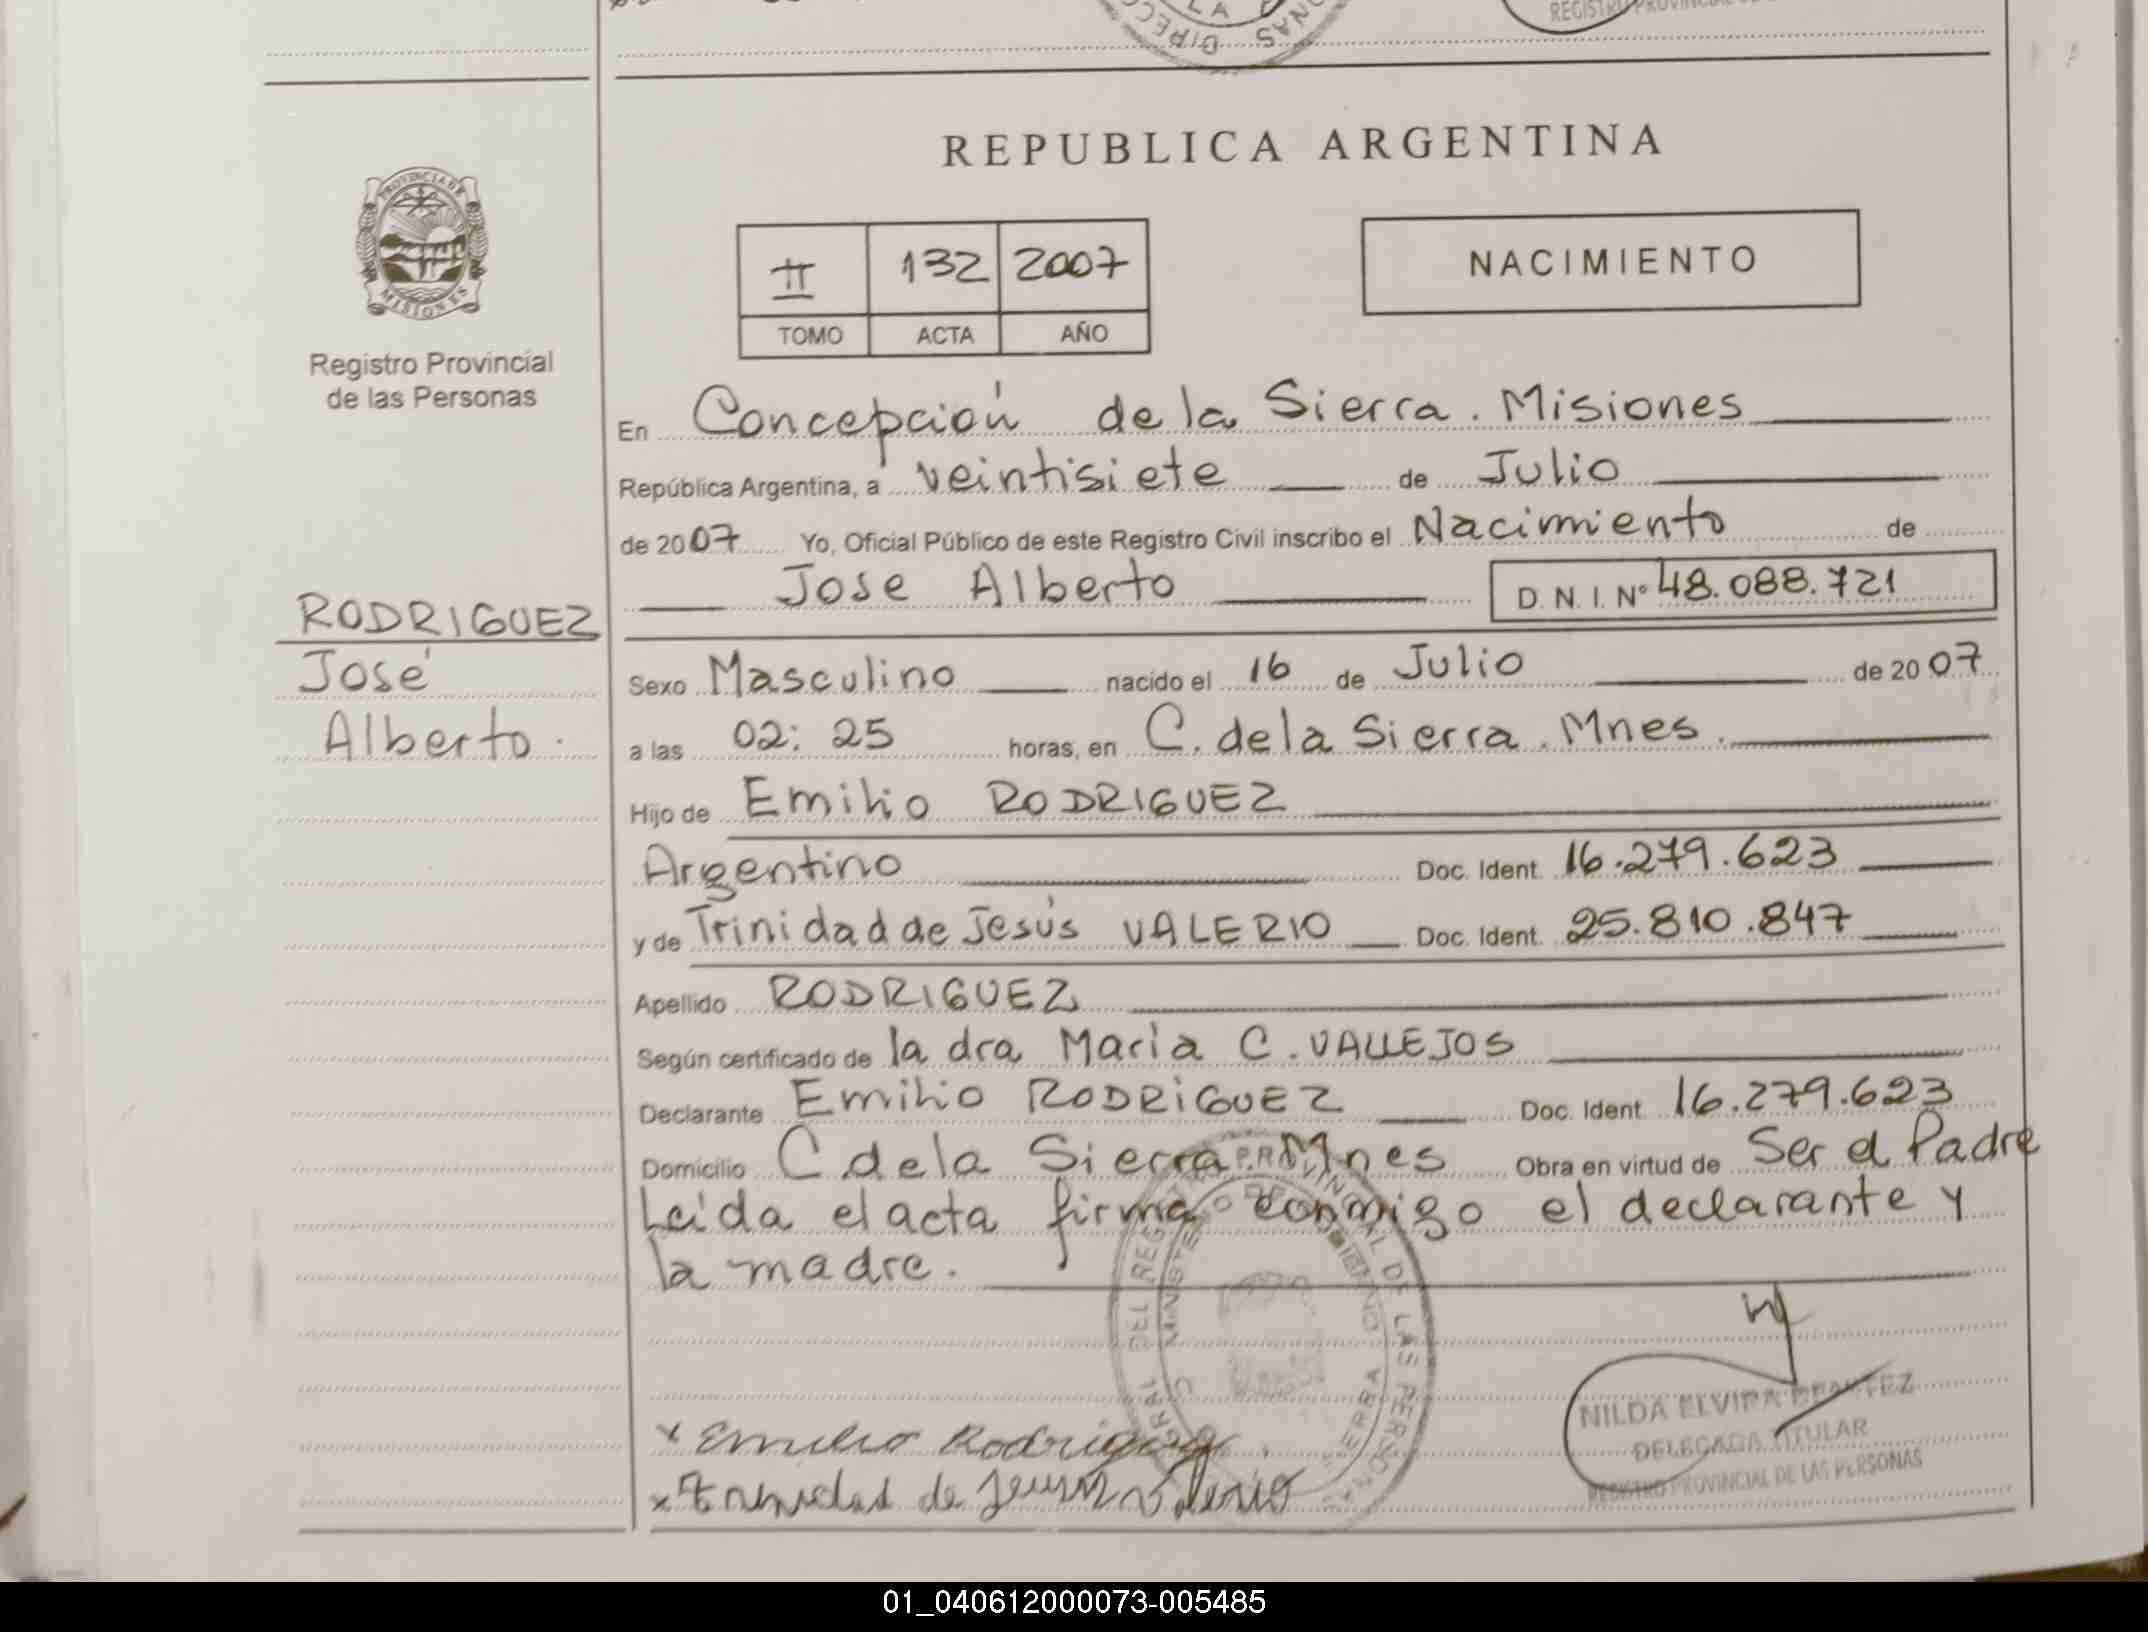 REGISTRO PROVINCIAL
REPUBLICA ARGENTINA
PROVINCIA DE
MISIONES
Registro Provincial
de las Personas
II 132 2007
TOMO ACTA AÑO
NACIMIENTO
En Concepción de la Sierra. Misiones
República Argentina, a veintisiete de Julio
de 2007 Yo, Oficial Público de este Registro Civil inscribo el Nacimiento de
Jose Alberto D.N.I. Nº 48.088.721
RODRIGUEZ
José
Alberto.
Sexo Masculino nacido el 16 de Julio de 2007
a las 02:25 horas, en C. de la Sierra. Mnes.
Hijo de Emilio RODRIGUEZ
Argentino Doc. Ident. 16.279.623
y de Trinidad de Jesús VALERIO Doc. Ident. 25.810.847
Apellido RODRIGUEZ
Según certificado de la dra Maria C. VALLEJOS
Declarante Emilio RODRIGUEZ Doc. Ident. 16.279.623
Domicilio C de la Sierra Mnes Obra en virtud de Ser el Padre
Leida el acta firma conmigo el declarante y
la madre.
x Emilio Rodriguez
x Trinidad de Jesus Valerio
NILDA ELVIRA BENITEZ
DELEGADA TITULAR
REGISTRO PROVINCIAL DE LAS PERSONAS
01_040612000073-005485